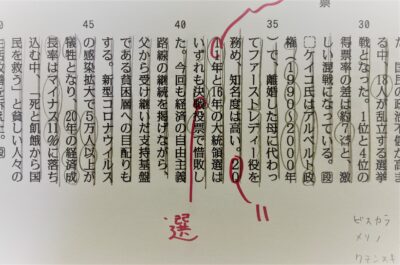 票
た。国民の政治不信が高ま
る中、18人が乱立する選挙
戦となった。1位と4位の
得票率の差は約7㌽と、激
しい混戦になっている。段
ケイコ氏はアルベルト政
権(1990~2000年
35
)で、離婚した母に代わっ
てファーストレディー役を
務め、知名度は高い。20
11年と16年の大統領選は
いずれも決戦投票で惜敗し
40
た。今回も経済の自由主義
路線の継続を掲げながら、
父から受け継いだ支持基盤
である貧困層への目配りも
する。新型コロナウイルス
45
の感染拡大で5万人以上が
犠牲となり、20年の経済成
長率はマイナス11%に落ち
込む中、「死と飢餓から国
を救う」と貧しい人々の
選
11
ビスカラ
メリノ
クチンスキ